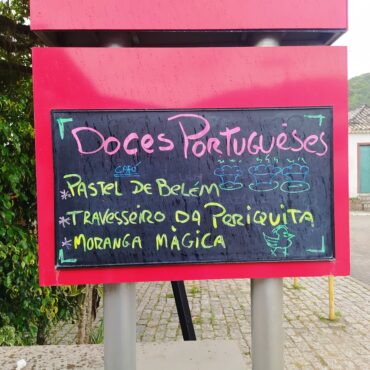 Doces Portugueses
CAFÉ
* Pastel de Belém
* Travesseiro da Periquita
* Moranga Mágica